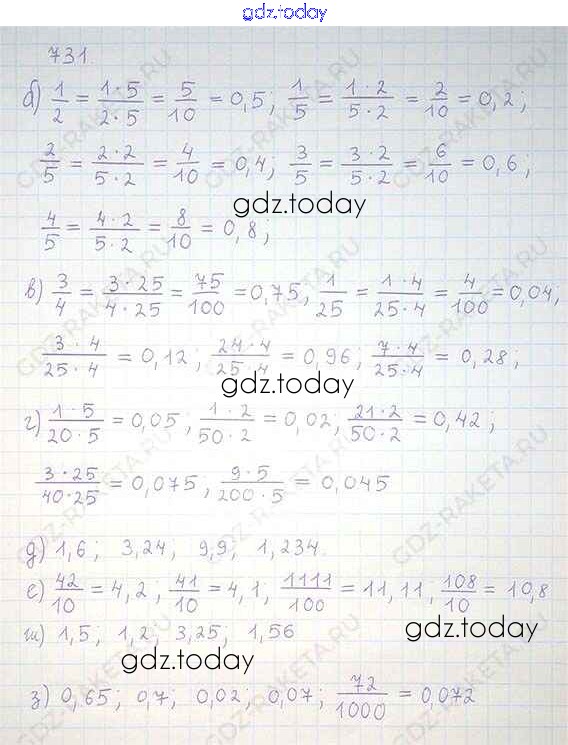 gdz.today
731.
б) 1/2 = 1·5/2·5 = 5/10 = 0,5; 1/5 = 1·2/5·2 = 2/10 = 0,2;
2/5 = 2·2/5·2 = 4/10 = 0,4; 3/5 = 3·2/5·2 = 6/10 = 0,6;
gdz.today
4/5 = 4·2/5·2 = 8/10 = 0,8;
в) 3/4 = 3·25/4·25 = 75/100 = 0,75, 1/25 = 1·4/25·4 = 4/100 = 0,04;
3·4/25·4 = 0,12; 24·4/25·4 = 0,96; 7·4/25·4 = 0,28;
gdz.today
г) 1·5/20·5 = 0,05; 1·2/50·2 = 0,02; 21·2/50·2 = 0,42;
3·25/40·25 = 0,075; 9·5/200·5 = 0,045
д) 1,6; 3,24; 9,9; 1,234.
е) 42/10 = 4,2; 41/10 = 4,1; 1111/100 = 11,11, 108/10 = 10,8
ж) 1,5; 1,2; 3,25; 1,56
gdz.today
gdz.today
з) 0,65; 0,7; 0,02; 0,07; 72/1000 = 0,072
GDZ-RAKETA.RU